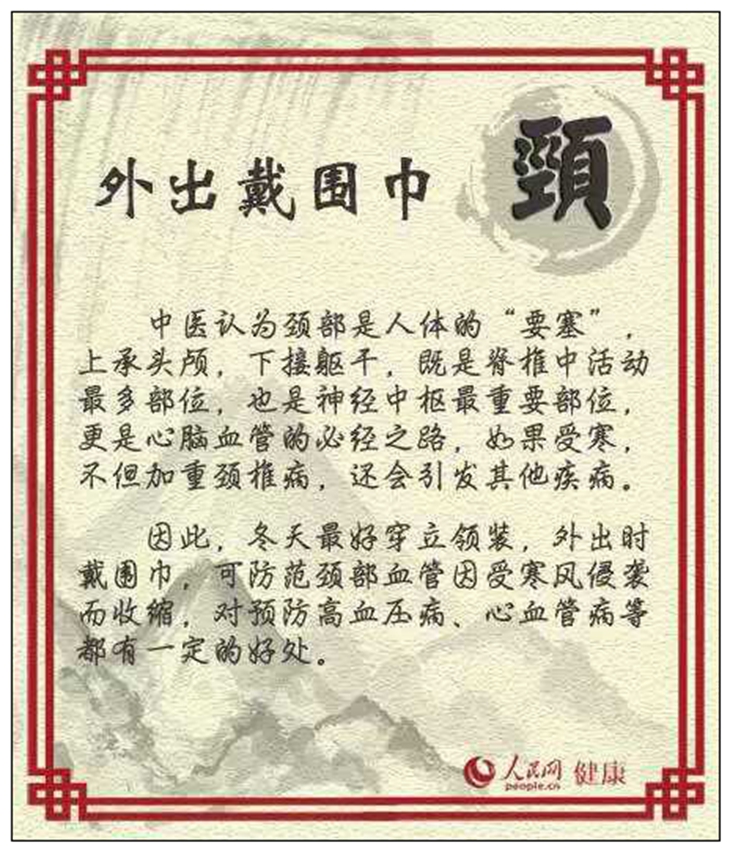 外出戴围巾
頸
中医认为颈部是人体的“要塞”，
上承头颅，下接躯干，既是脊椎中活动
最多部位，也是神经中枢最重要部位，
更是心脑血管的必经之路，如果受寒，
不但加重颈椎病，还会引发其他疾病。
因此，冬天最好穿立领装，外出时
戴围巾，可防范颈部血管因受寒风侵袭
而收缩，对预防高血压病、心血管病等
都有一定的好处。
人民网 健康
people.cn